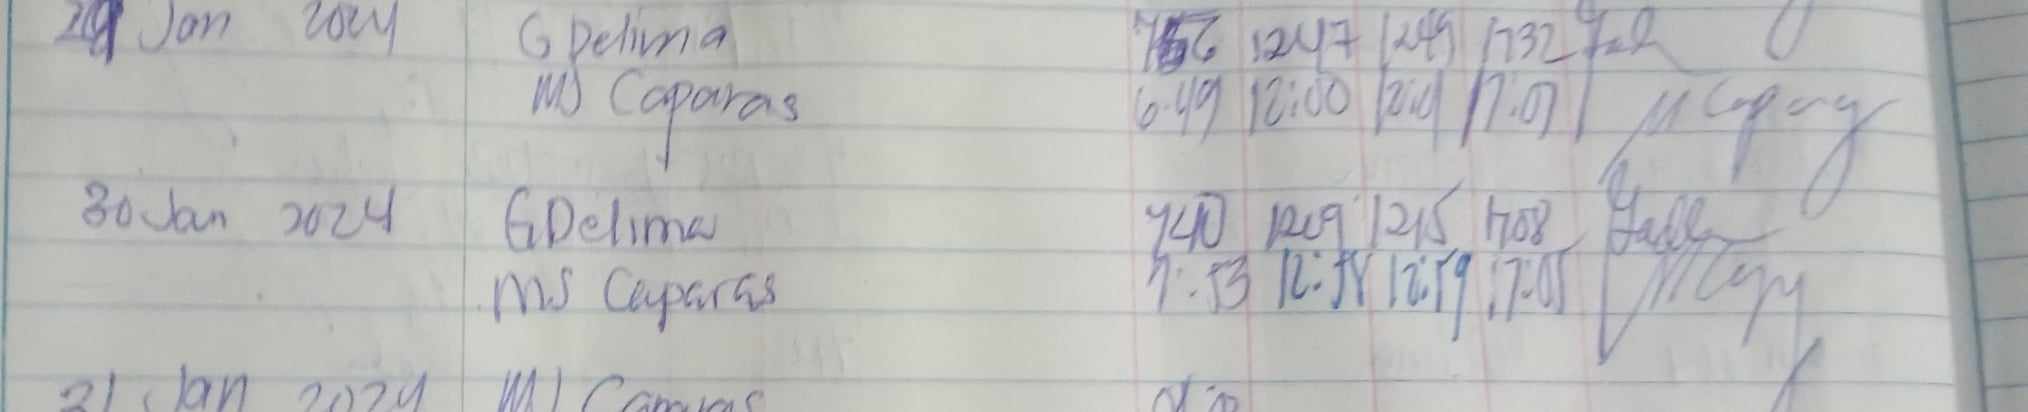 29 Jan 2024 G Delima 756 1247 1249 1732
MJ Caparas 6:49 12:00 12:01 17:07
30 Jan 2024 G Delima 740 1209 1215 1708
MS Caparas 7:53 12:58 12:59 17:05
31 Jan 2024 MJ Caparas